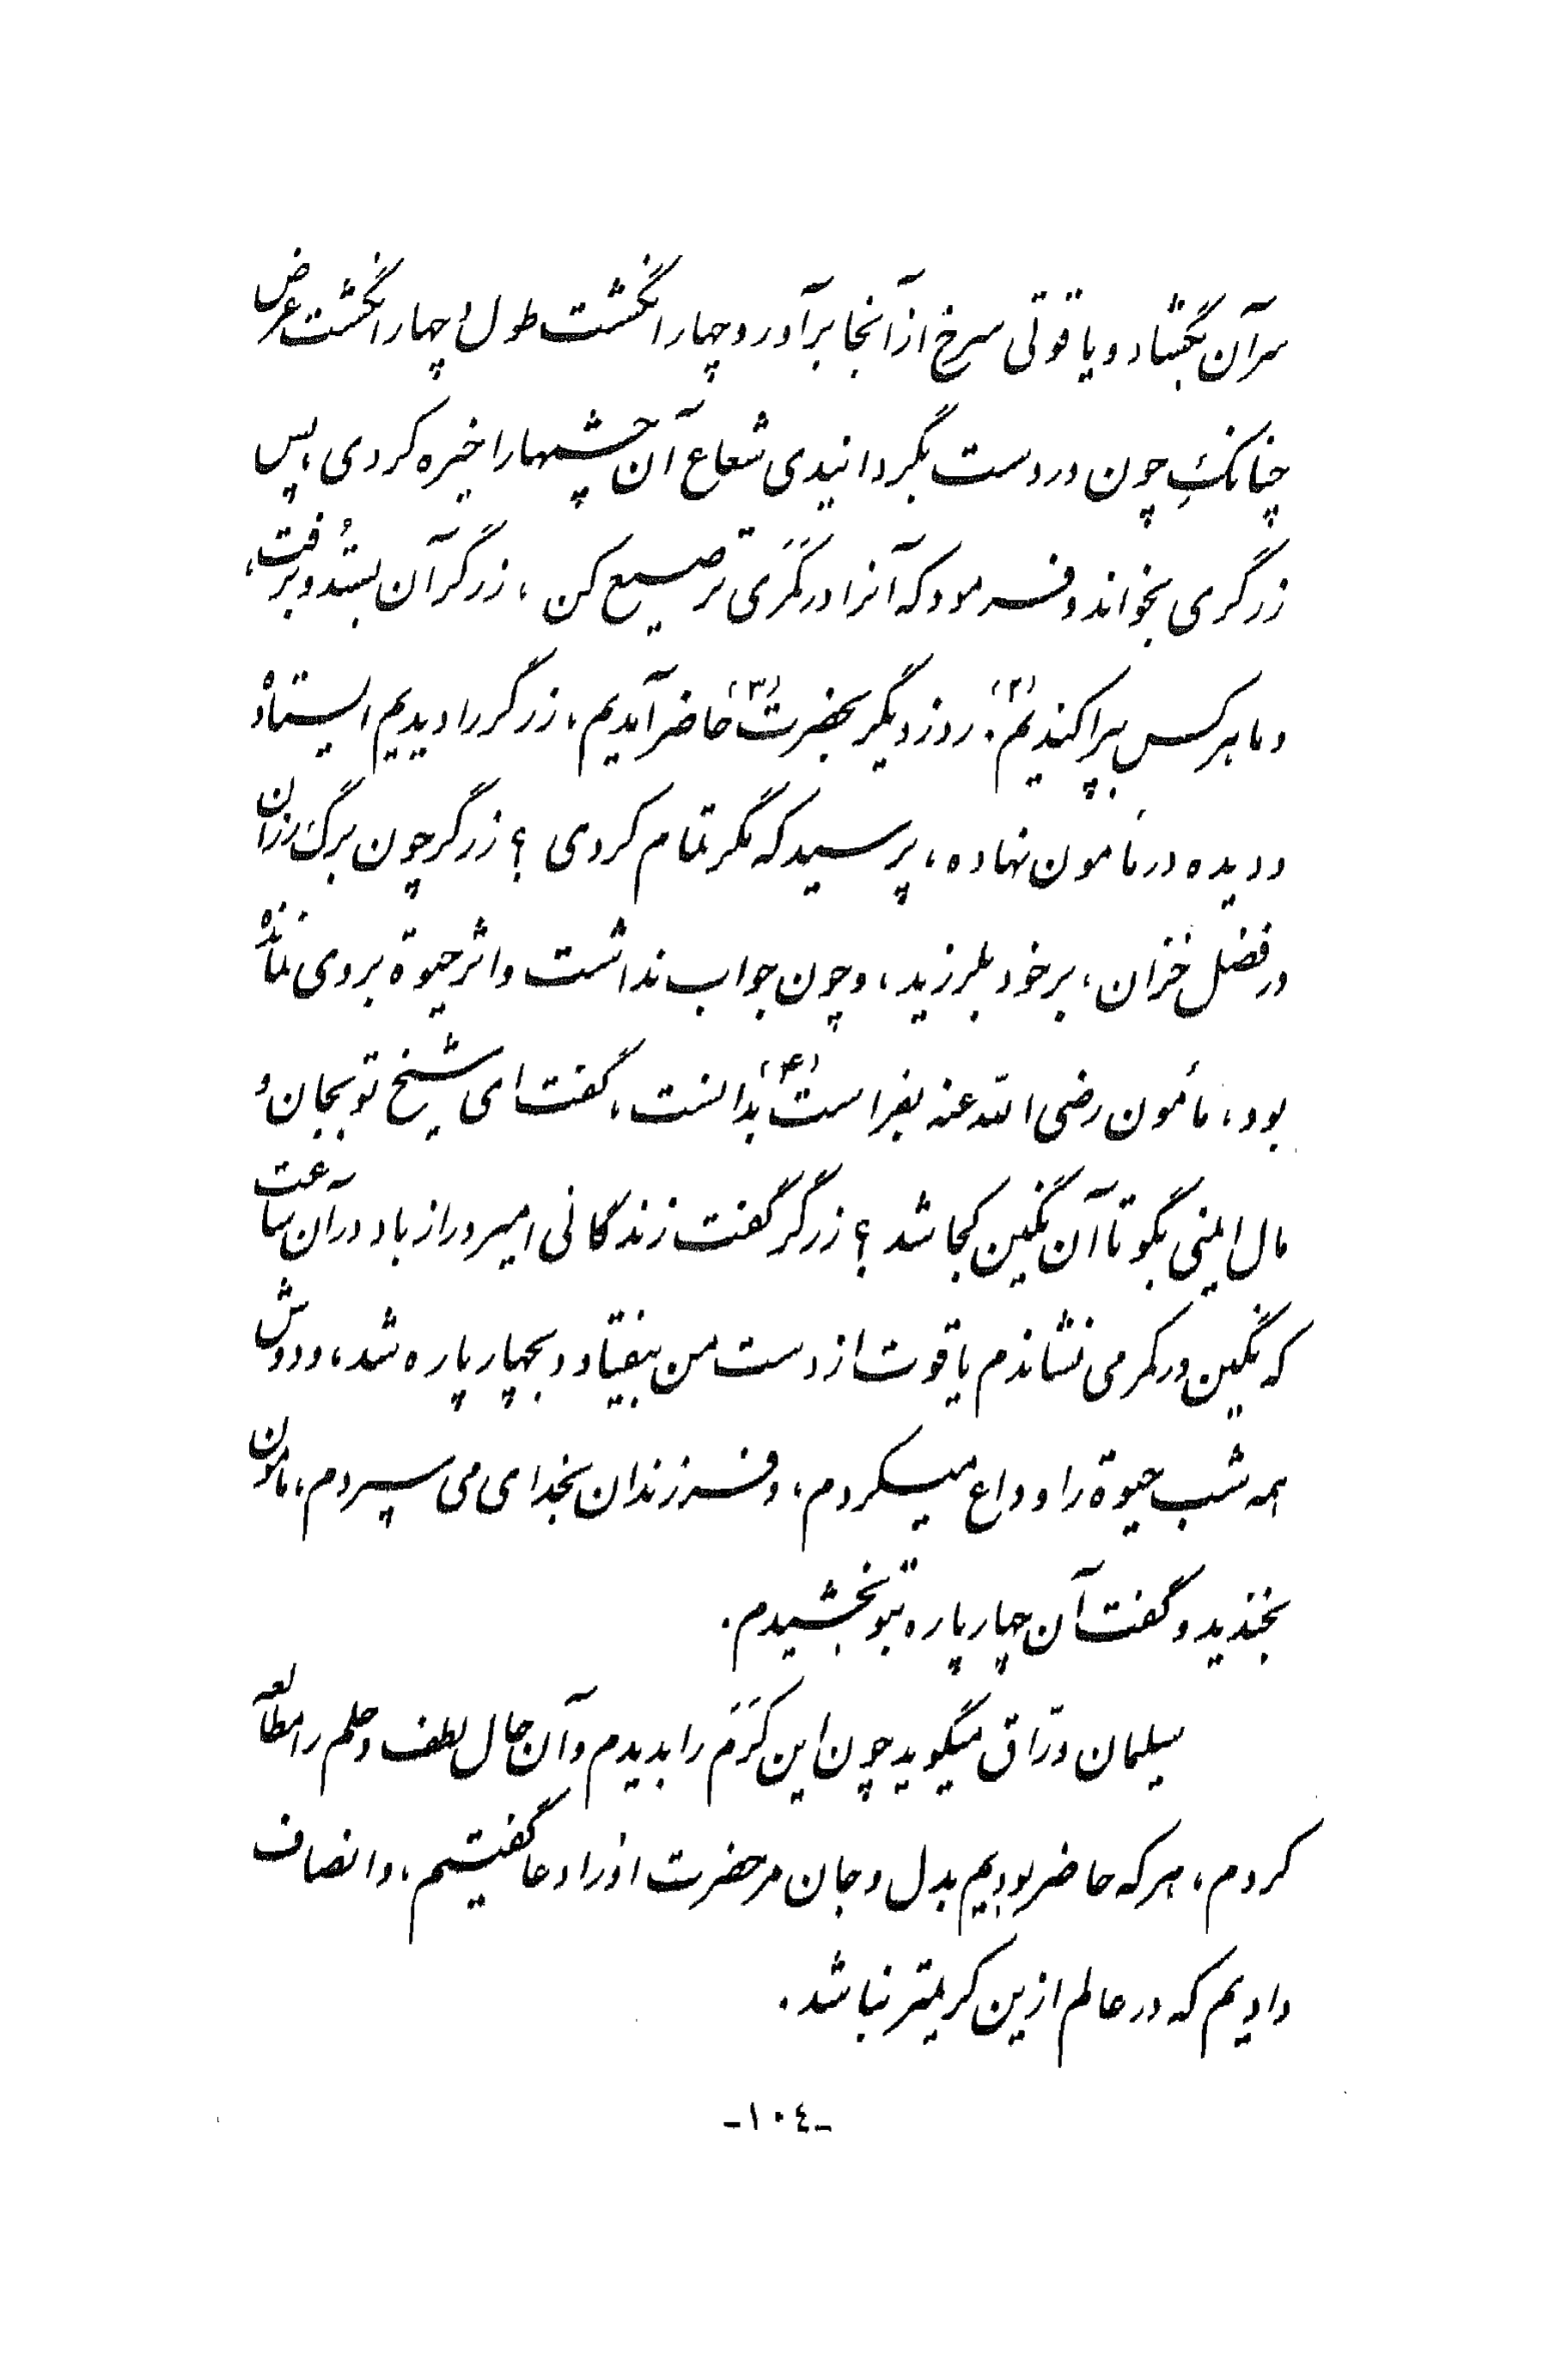 سر آن بگشاد و یاقوتی سرخ از آنجا برآورد چهار انگشت طول و چهار انگشت عرض
چنانک چون در دست بگردانیدی شعاع آن چشمها را خیره کردی، پس
زرگری بخواند و فرمود که آنرا در کَمَری ترصیع کن، زرگر آن بستُد و برفت،
و ما هر کس بپراکندیم(۲). روز دیگر بحضرت(۳) حاضر آمدیم، زرگر را دیدیم ایستاده
و دیده در مأمون نهاده، پرسید که مگر تمام کردی؟ زرگر چون برگ رزان
در فصل خزان، بر خود بلرزید، و چون جواب نداشت و اثر حیوة بروی نمانده
بود، مأمون رضی الله عنه بفراست(۴) بدانست، گفت ای شیخ تو بجان و
مال ایمنی بگو تا آن نگین کجا شد؟ زرگر گفت زندگانی امیر دراز باد در آن ساعت
که نگین در کمر می نشاندم یاقوت از دست من بیفتاد و بچهار پاره شد، و دوش
همه شب حیوة را وداع میکردم، و فرزندان بخدای می سپردم، مأمون
بخندید و گفت آن چهار پاره بتو بخشیدم.
سلیمان ورّاق میگوید چون این کَرَم را بدیدم و آن حال لطف و حلم را مطالعه
کردم، هر که حاضر بودیم بدل و جان مر حضرت او را دعا گفتیم، و انصاف
دادیم که در عالم ازین کریمتر نباشد.
-۱۰٤-